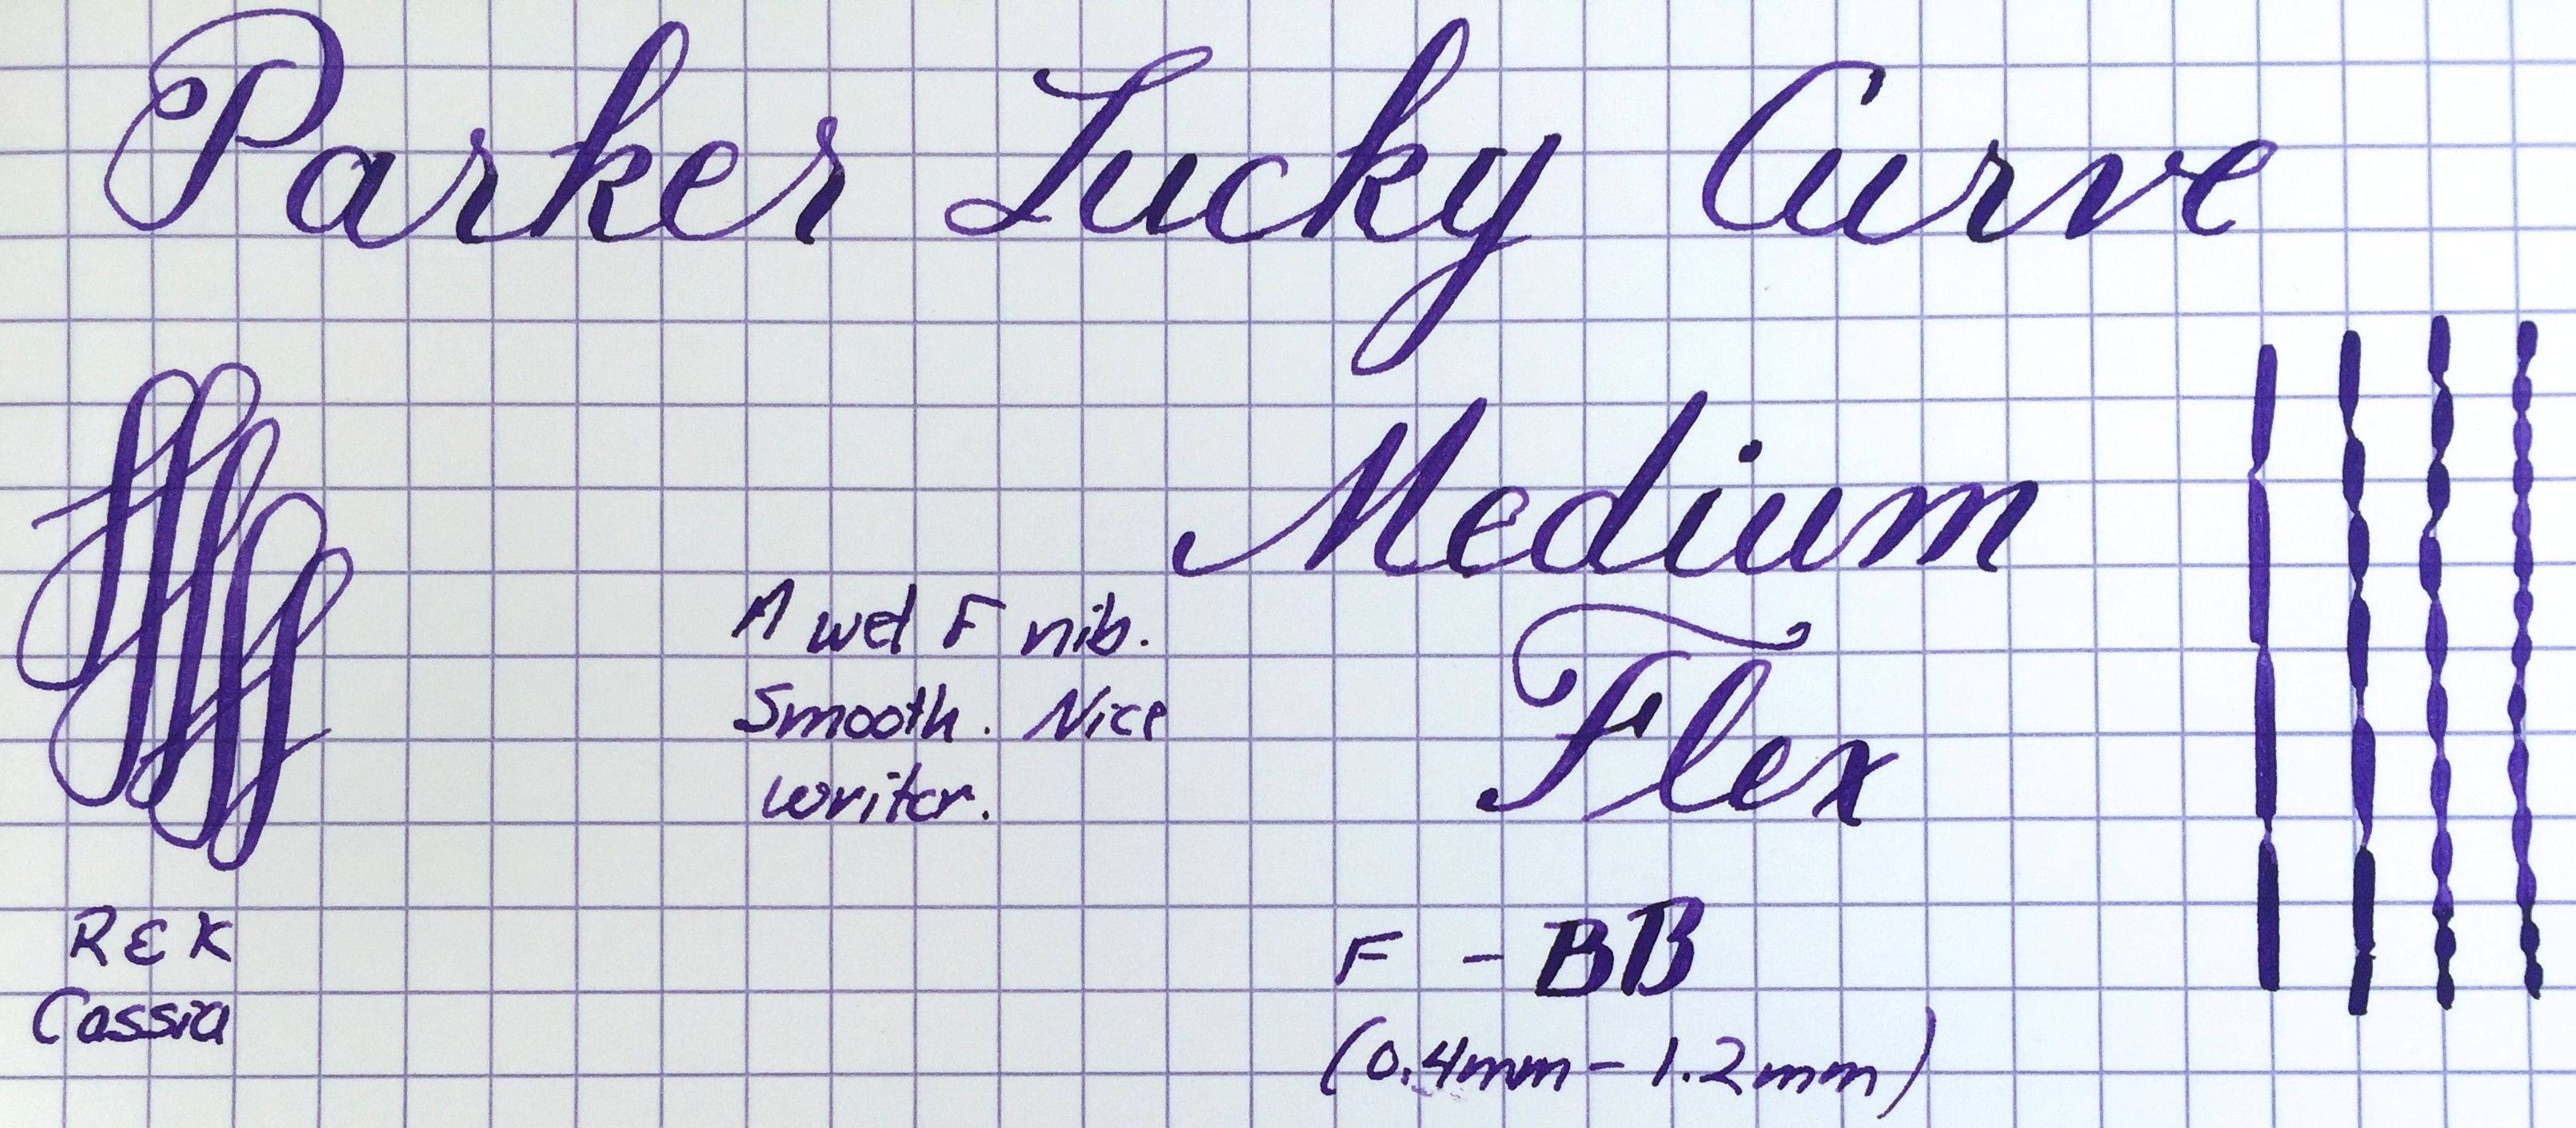 Parker Lucky Curve
Medium
Flex
A wet F nib.
Smooth. Nice
writer.
R & K
Cassia
F - BB
(0.4mm - 1.2mm)